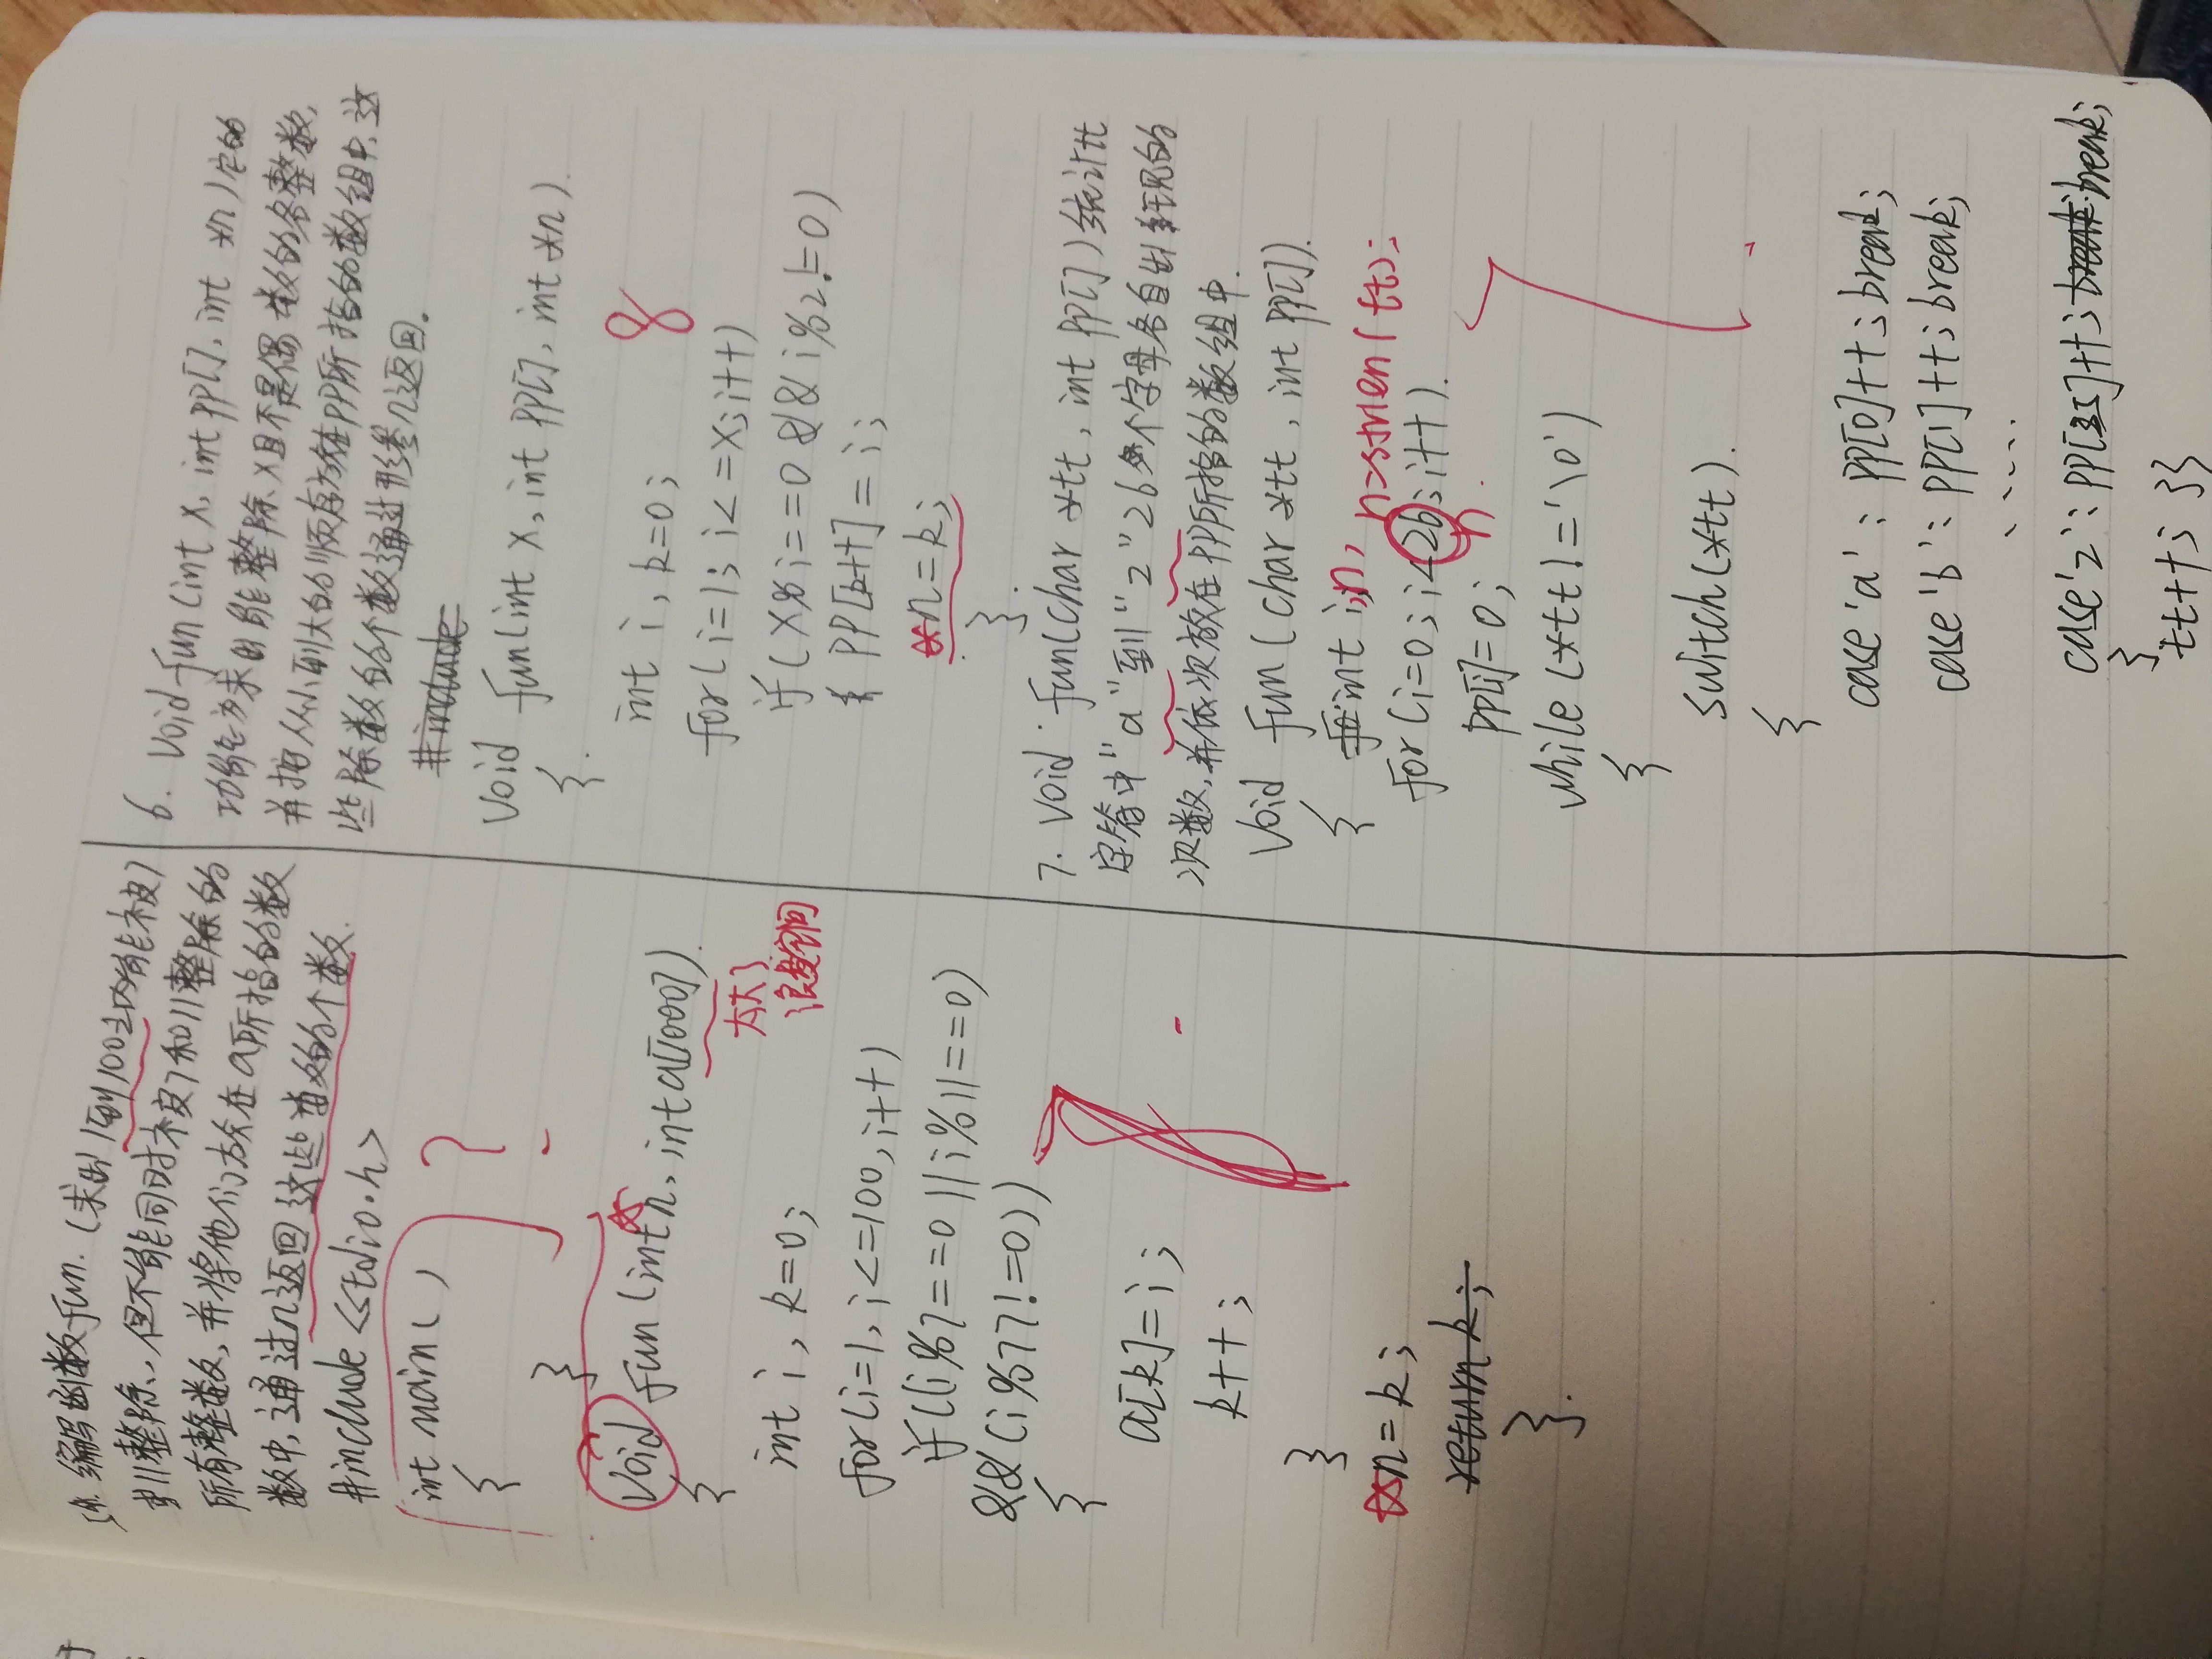 5. 编写函数fun.(求出1到100之内能被7
或11整除,但不能同时被7和11整除的
所有整数,并将他们放在a所指的数
数中,通过n返回这些数的个数.
#include <stdio.h>
int main()
{
}
void fun(int *n, int a[1000])
太大了
浪费空间
{
int i, k=0;
for(i=1, i<=100, i++)
if((i%7==0||i%11==0)
&&(i%77!=0))
{
a[k]=i;
k++;
}
*n=k;
return k;
}.
6. void fun(int x, int pp[], int *n)它的
功能为求出能整除x且不是偶数的各整数,
并按从小到大的顺序存放在pp所指的数组中,这
些除数的个数通过形参n返回。
#include
void fun(int x, int pp[], int *n).
{.
int i, k=0;
8
for(i=1; i<=x; i++)
if(x%i==0&&i%2!=0)
pp[k++]=i;
*n=k;
}.
7. void fun(char *tt, int pp[])统计tt
字符中"a"到"z"26个字母各自出现的
次数,并依次放在pp所指的数组中.
void fun(char *tt, int pp[]).
{ int i,n, n=strlen(tt);
for(i=0; i<26; i++).
n
pp[i]=0;
while(*tt!='\0')
{
switch(*tt).
{
case'a': pp[0]++; break;
case'b': pp[1]++; break;
.....
case'z': pp[25]++; break; break;
}
tt++; }}